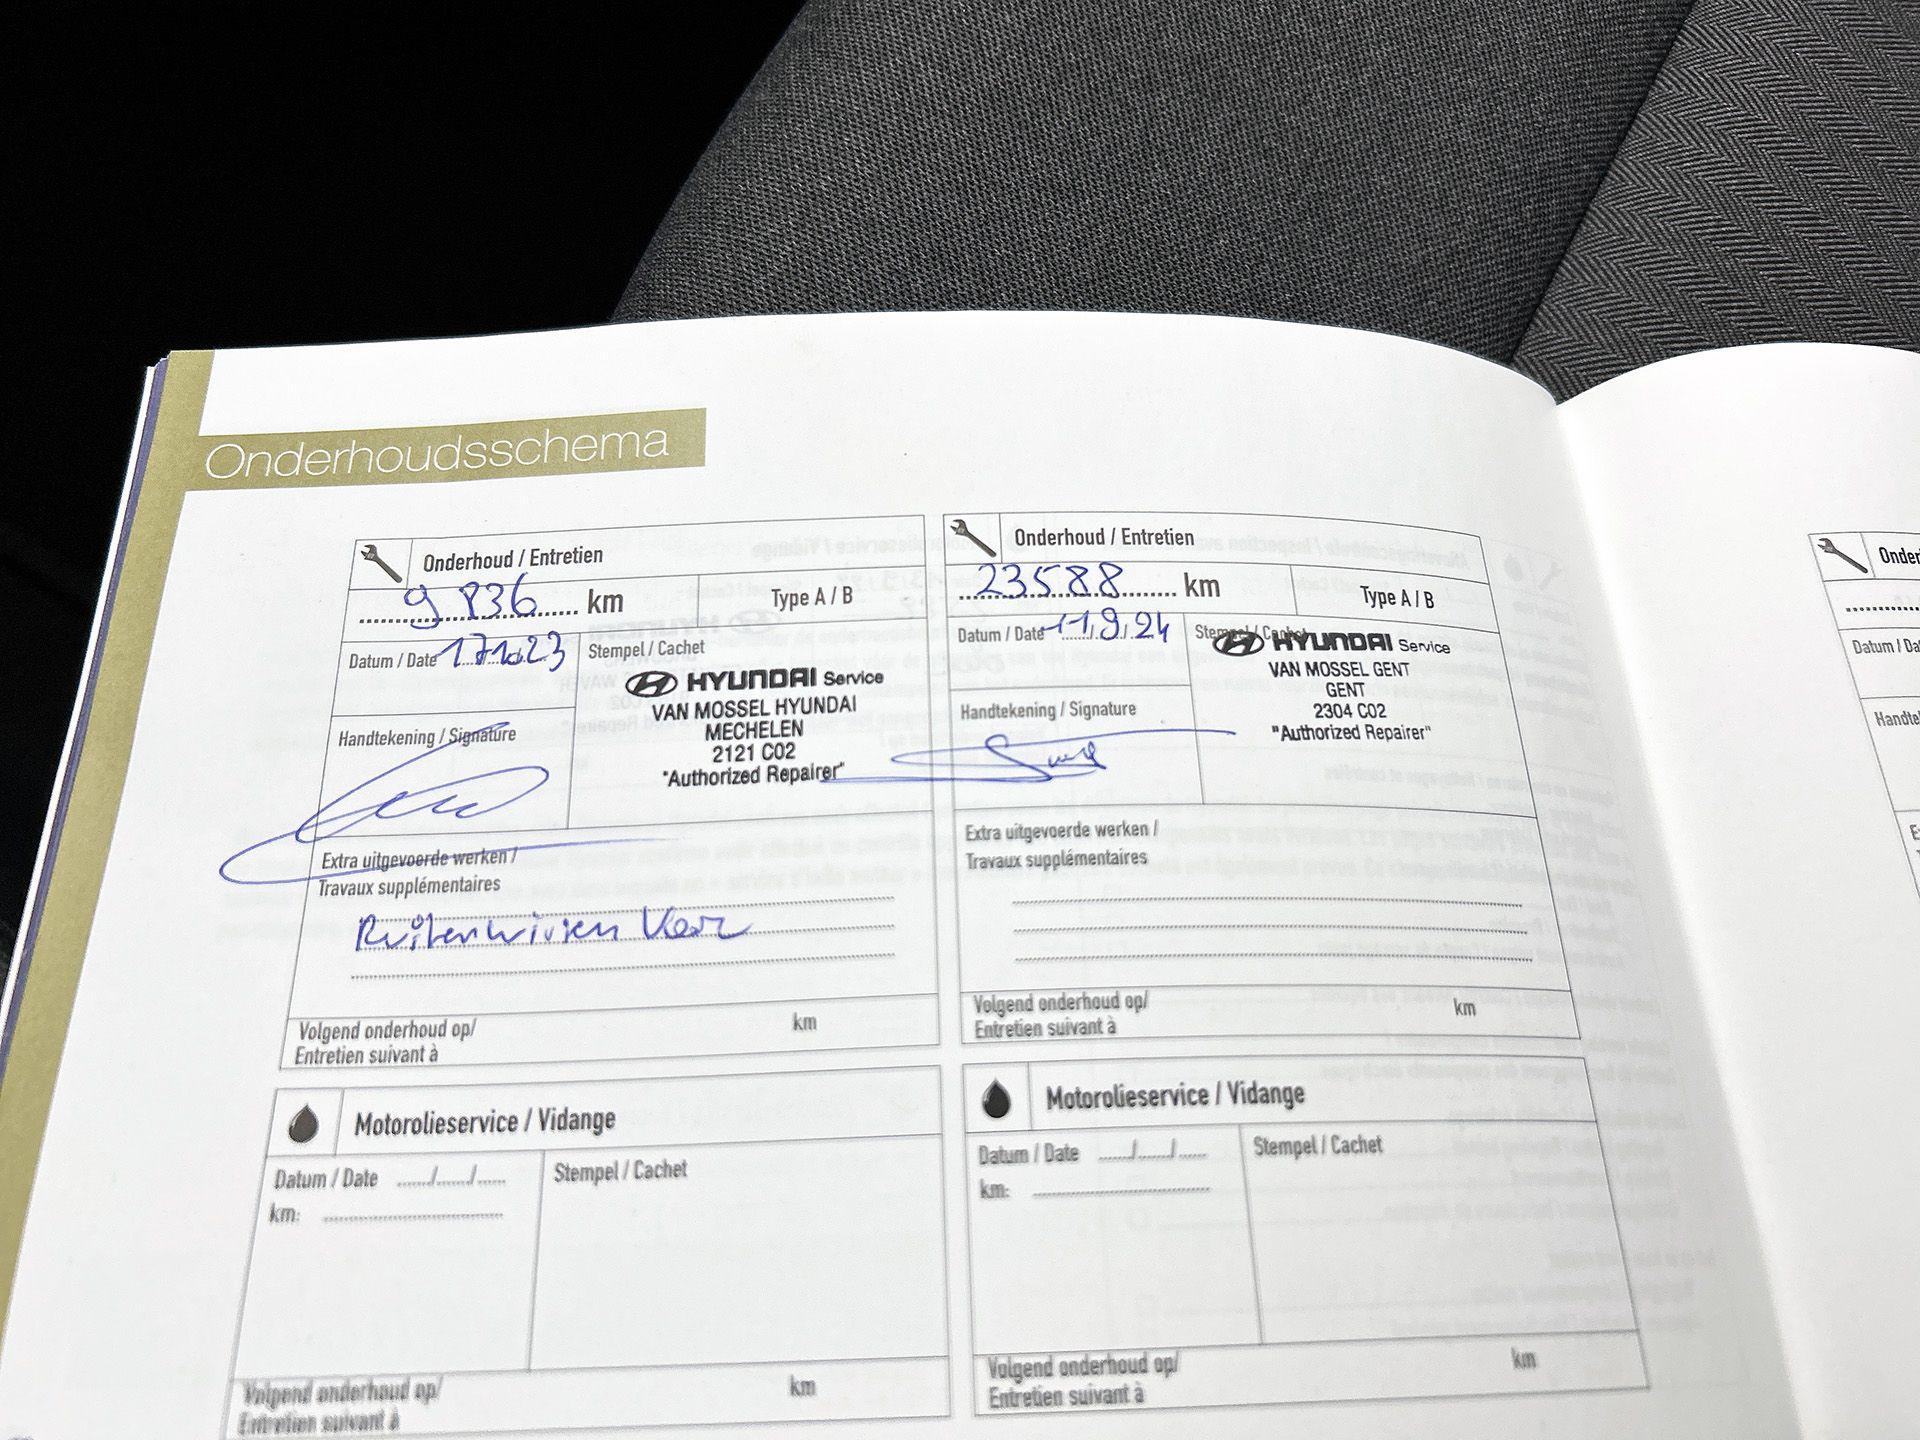 Onderhoudsschema
Onderhoud / Entretien
9 836 km
Type A / B
Datum / Date 17.10.23
Stempel / Cachet
HYUNDAI Service
VAN MOSSEL HYUNDAI
MECHELEN
2121 C02
"Authorized Repairer"
Handtekening / Signature
Extra uitgevoerde werken /
Travaux supplémentaires
Ruitenwissers
Volgend onderhoud op/ km
Entretien suivant à
Onderhoud / Entretien
23588 km
Type A / B
Datum / Date 11.9.24
Stempel / Cachet
HYUNDAI Service
VAN MOSSEL GENT
GENT
2304 C02
"Authorized Repairer"
Handtekening / Signature
Extra uitgevoerde werken /
Travaux supplémentaires
Volgend onderhoud op/ km
Entretien suivant à
Motorolieservice / Vidange
Datum / Date ....../....../......
Stempel / Cachet
km:
Volgend onderhoud op/ km
Entretien suivant à
Motorolieservice / Vidange
Datum / Date ....../....../......
Stempel / Cachet
km:
Volgend onderhoud op/ km
Entretien suivant à